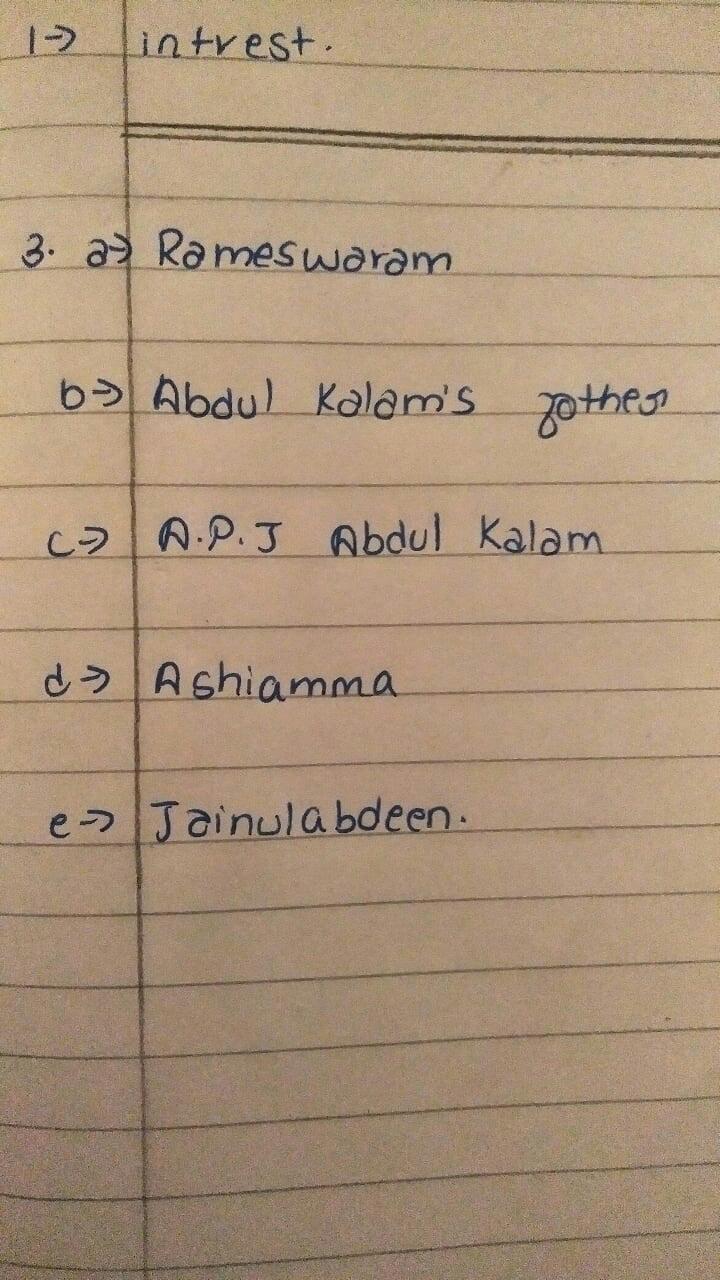 1→ intrest.
3. a→ Rameswaram
b→ Abdul Kalam's father
c→ A.P.J Abdul Kalam
d→ Ashiamma
e→ Jainulabdeen.